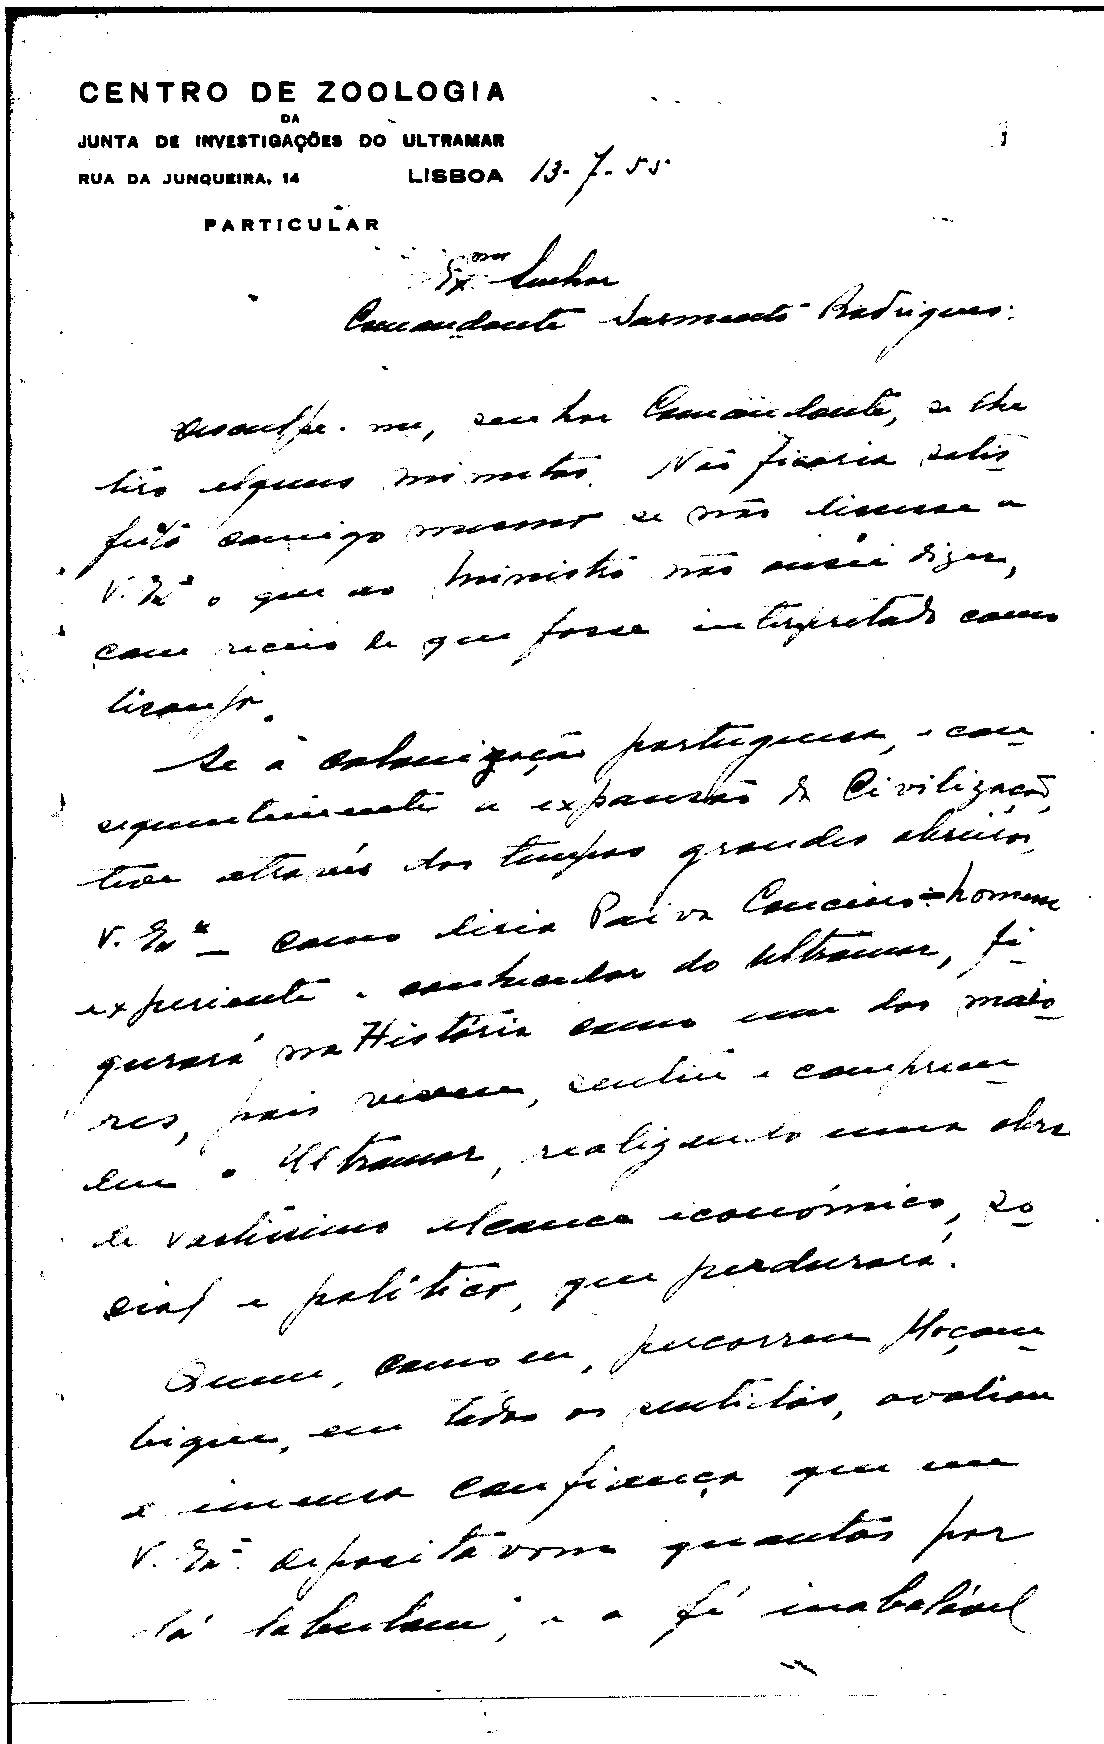 CENTRO DE ZOOLOGIA
DA
JUNTA DE INVESTIGAÇÕES DO ULTRAMAR
RUA DA JUNQUEIRA, 14 LISBOA 13-7-55
PARTICULAR
Exmo Senhor
Comandante Sarmento Rodrigues:
Desculpe-me, senhor Comandante, se lhe
tiro alguns minutos. Não ficaria satis
feito comigo mesmo se não dissesse a
V. Exª o que ao Ministro não ousei dizer,
com receio de que fosse interpretado como
lisonja.
Se a colonização portuguesa, e con-
sequentemente a expansão da Civilização,
teve através dos tempos grandes obreiros,
V. Exª — como diria Paiva Couceiro — homem
experiente e conhecedor do Ultramar, fi-
gurará na História como um dos maio-
res, pois viveu, sentiu e compreen-
deu o Ultramar, realizando uma obra
de vastíssimo alcance económico, so-
cial e político, que perdurará.
Quem, como eu, percorreu Moçam-
bique, em todos os sentidos, avaliou
a imensa confiança que em
V. Exª depositavam quantos por
lá labutam, e a fé inabalável